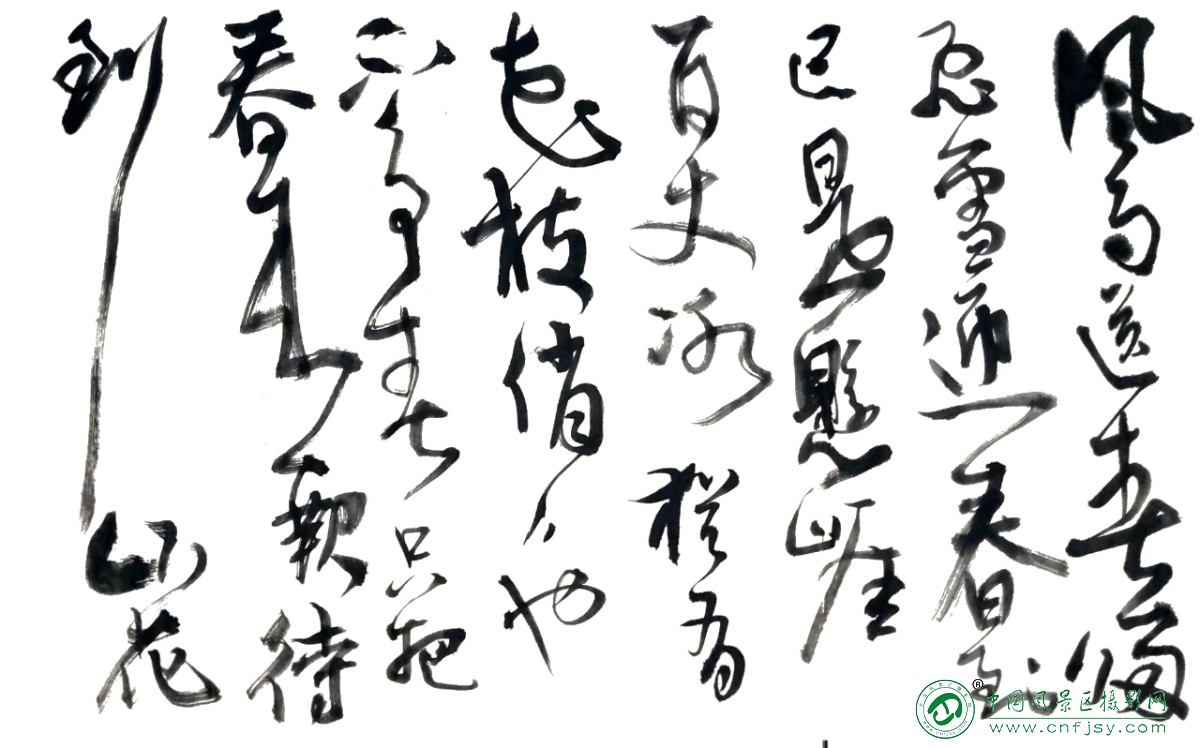 風雨送春歸
飛雪迎春到
已是懸崖
百丈冰猶有
花枝俏々也
不爭春只把
春來報待
到山花
中国风景区摄影网
www.cnfjsy.com